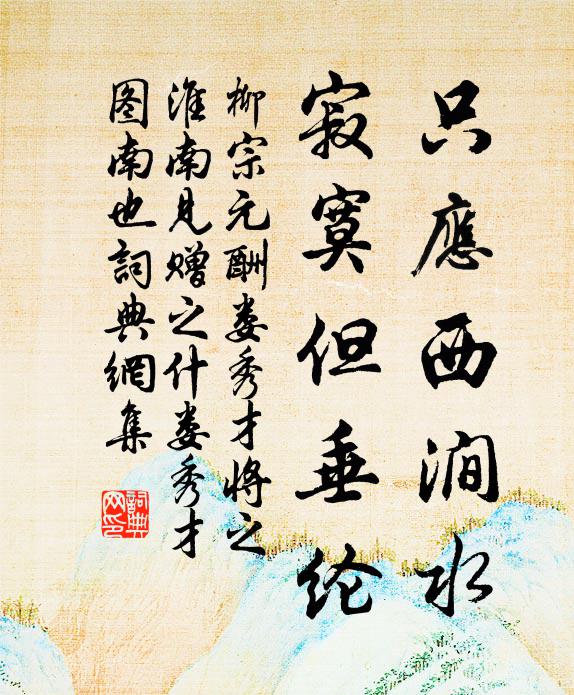 只應西澗水
寂寞但垂纶
柳宗元酬娄秀才將之
淮南見赠之什娄秀才
图南也詞典網集
詞典
网印